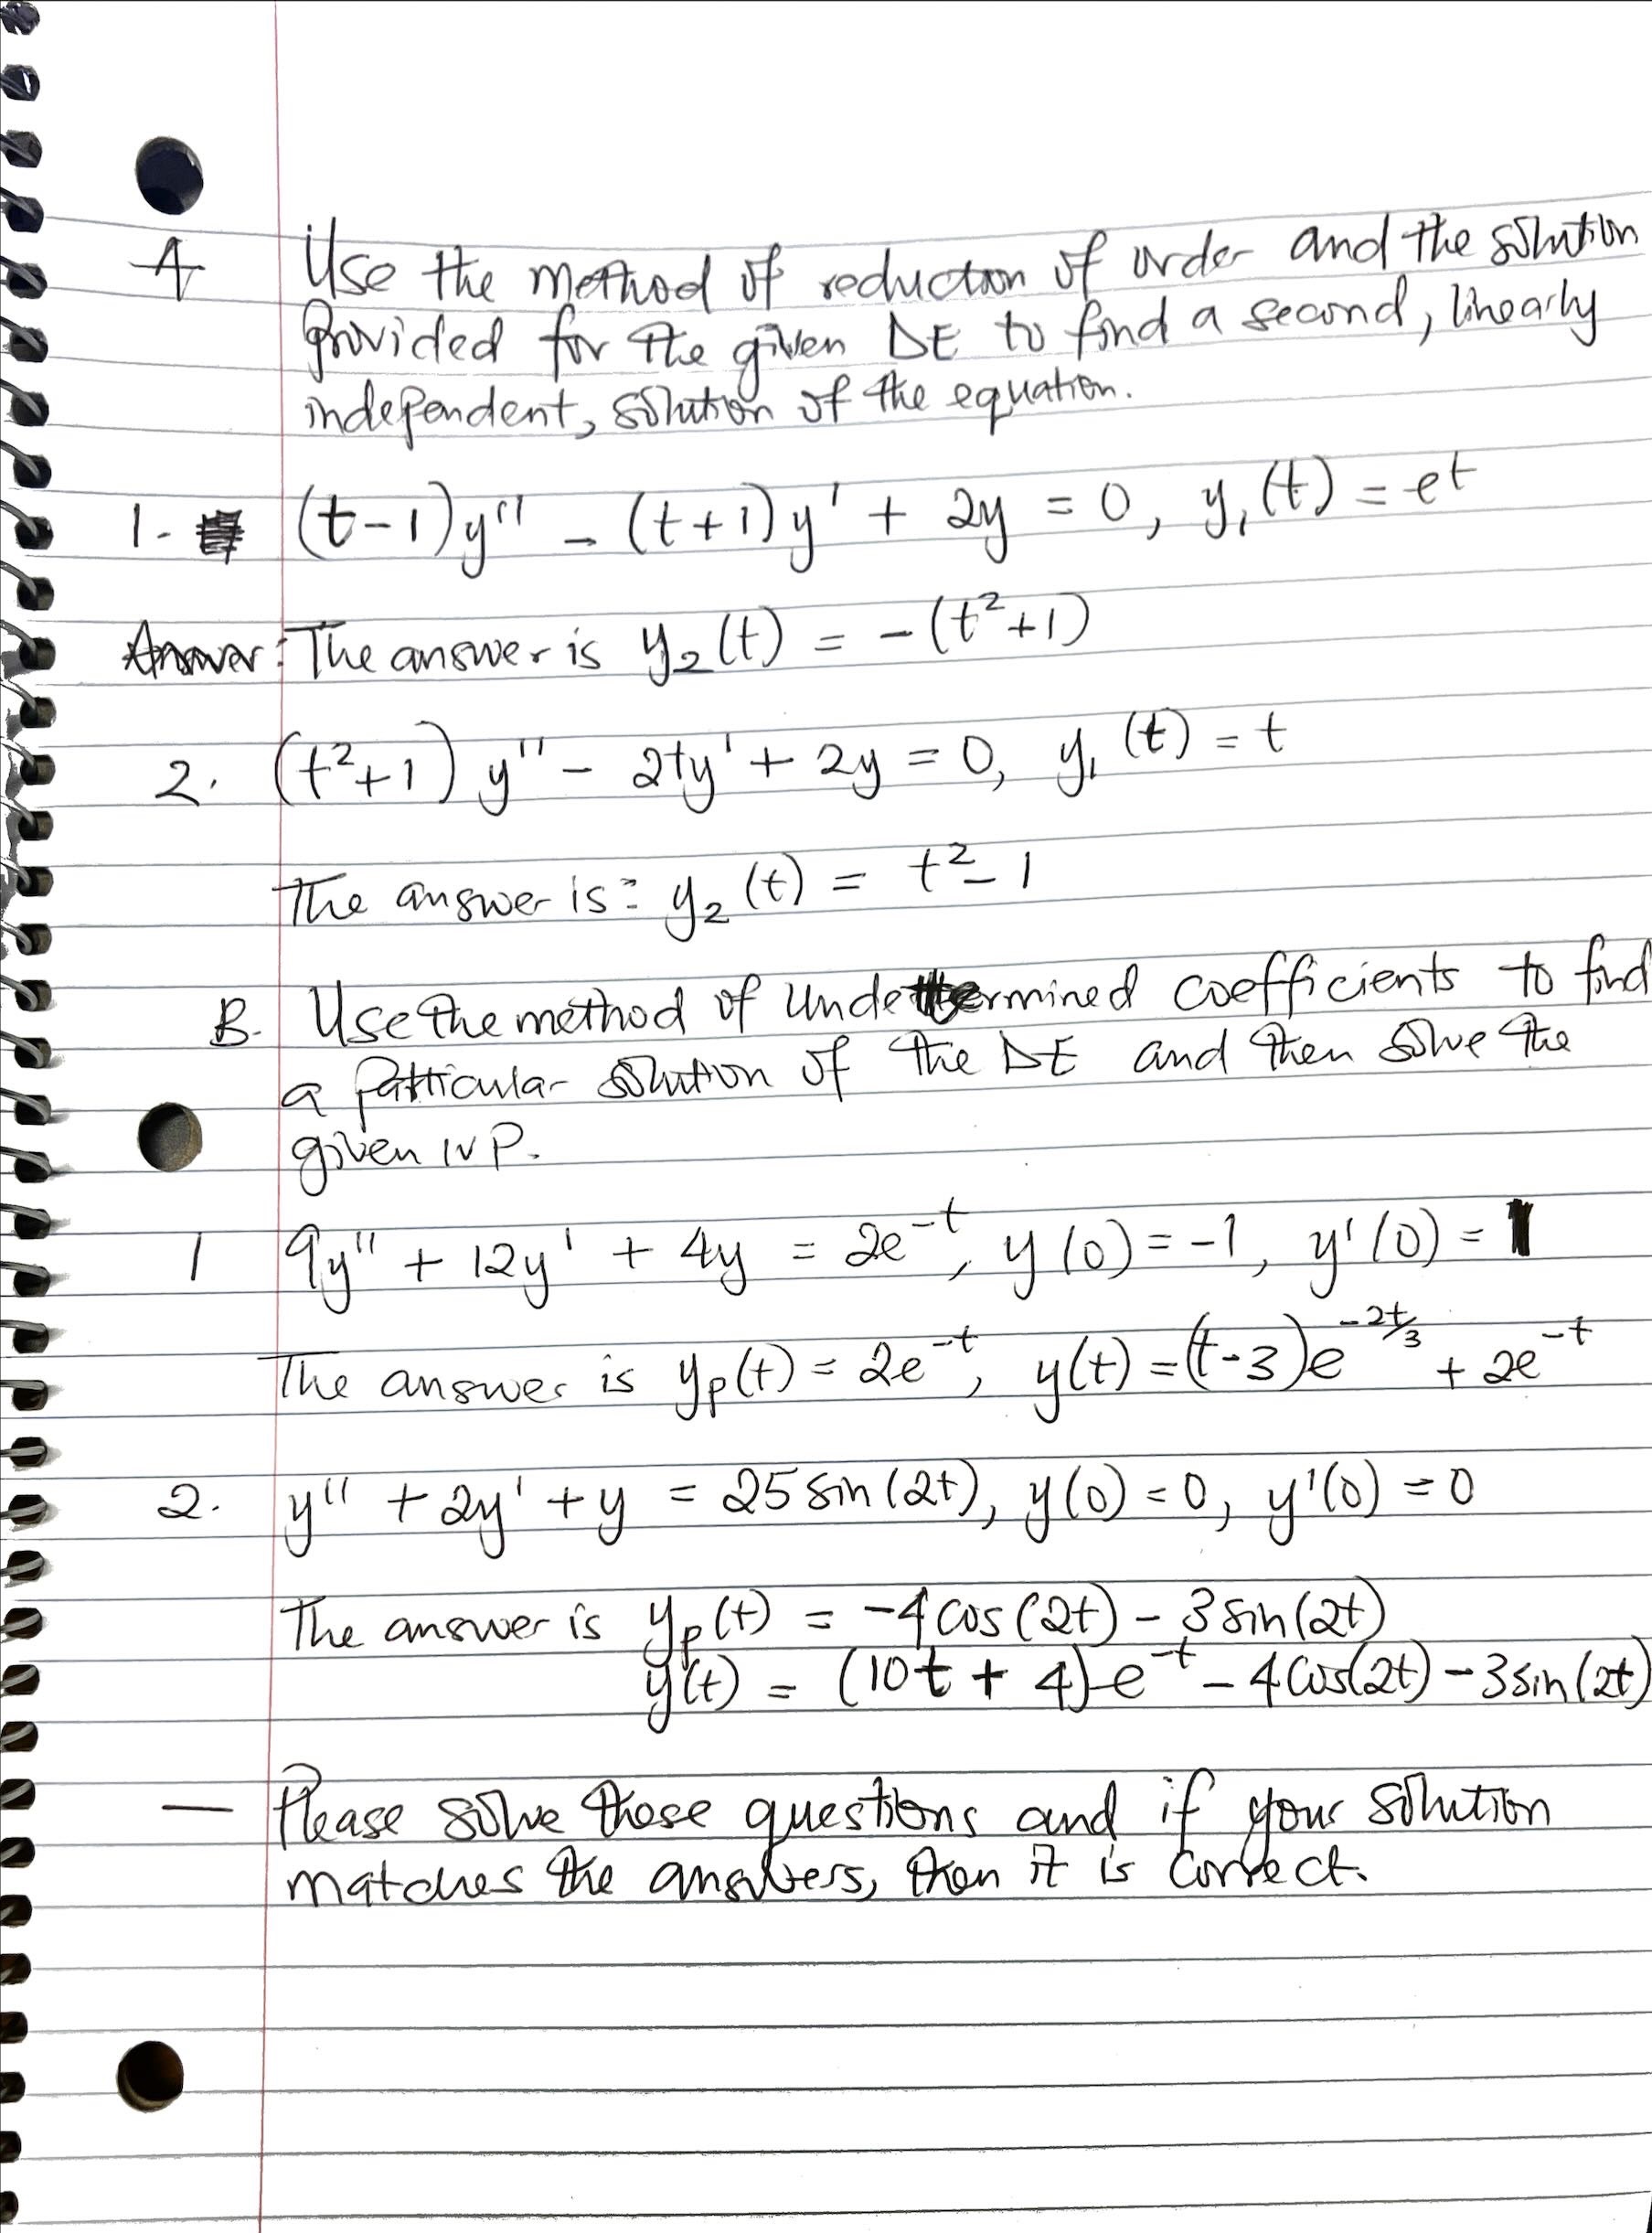 A Use the method of reduction of order and the solution
provided for the given DE to find a second, linearly
independent, solution of the equation.
1. (t-1)y'' - (t+1)y' + 2y = 0, y₁(t) = et
Answer: The answer is y₂(t) = -(t²+1)
2. (t²+1) y'' - 2ty' + 2y = 0, y₁(t) = t
The answer is: y₂(t) = t²-1
B. Use the method of Undetermined coefficients to find
a particular solution of the DE and then solve the
given IVP.
1 9y'' + 12y' + 4y = 2e^-t, y(0) = -1, y'(0) = 1
The answer is yₚ(t) = 2e^-t, y(t) = (t-3)e^-2t/3 + 2e^-t
2. y'' + 2y' + y = 25 sin(2t), y(0) = 0, y'(0) = 0
The answer is yₚ(t) = -4 cos(2t) - 3 sin(2t)
y(t) = (10t + 4)e^-t - 4 cos(2t) - 3 sin(2t)
— Please solve those questions and if your solution
matches the answers, then it is correct.